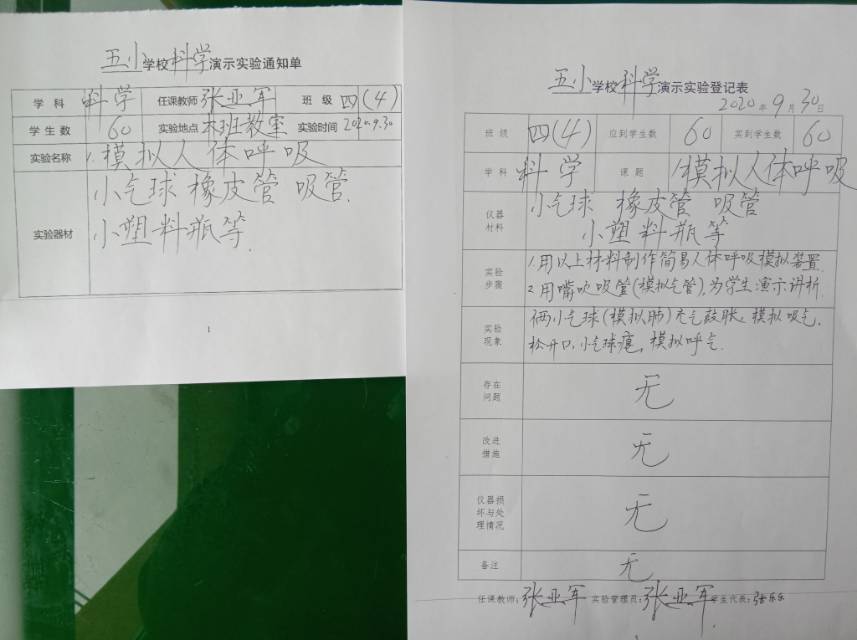 五小学校科学演示实验通知单
学科 科学 任课教师 张亚军 班级 四(4)
学生数 60 实验地点 本班教室 实验时间 2020.9.30
实验名称 1.模拟人体呼吸
实验器材 小气球 橡皮管 吸管
小塑料瓶等.
1
五小学校科学演示实验登记表
2020年9月30日
班级 四(4) 应到学生数 60 实到学生数 60
学科 科学 课题 1.模拟人体呼吸
仪器材料 小气球 橡皮管 吸管
小塑料瓶等
实验步骤 1.用以上材料制作简易人体呼吸模拟装置.
2.用嘴吹吸管(模拟气管),为学生演示讲析.
实验现象 俩小气球(模拟肺)充气鼓胀,模拟吸气,
松开口,小气球瘪,模拟呼气.
存在问题 无
改进措施 无
仪器损坏与处理情况 无
备注 无
任课教师:张亚军 实验管理员:张亚军 学生代表:张乐乐